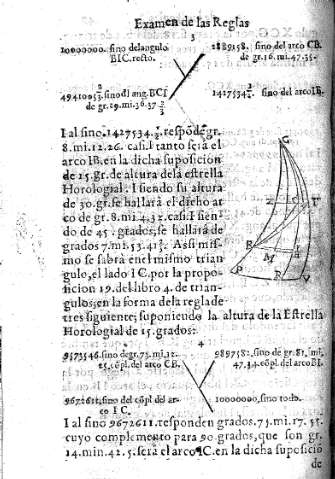 Examen de las Reglas
3
10000000. sino delangulo
BIC. recto.
2889158. sino del arco CB.
de gr.16.mi.47.35.
4941095 2/3 sino dl ang. BCI
de gr.29.mi.36.37 2/3
1427534 2/3. sino del arco IB.
I al sino 1427534. 2/3. respõde gr.
8. mi. 12. 26. casi. I tanto será el
arco IB. en la dicha suposicion
de 15. gr. de altura de la estrella
Horologial. I siendo su altura
de 30. gr. se hallará el dicho ar
co de gr. 8. mi. 4. 32. casi. I sien
do de 45. grados, se hallará de
grados 7. mi. 53. 41 2/3. Assi mis-
mo se sabrá en el mismo trian-
gulo, el lado IC. por la propo-
sicion 19. del libro 4. de trian-
gulos, en la forma de la regla de
tres siguiente; suponiendo la altura de la Estrella
Horologial de 15. grados:
C
Z
I
T
B
M
P
R
V
4
9573546. sino de gr. 73. mi. 12.
25. cõpl. del arco CB.
989758. sino de gr. 81. mi.
47. 34. cõpl. del arco BI.
9672611. sino del cõpl del ar-
co IC.
10000000. sino todo.
I al sino 9672611. responden grados. 75. mi. 17. 55.
cuyo complemento para 90. grados, que son gr.
14. min. 42. 5. será el arco IC. en la dicha suposicio
de